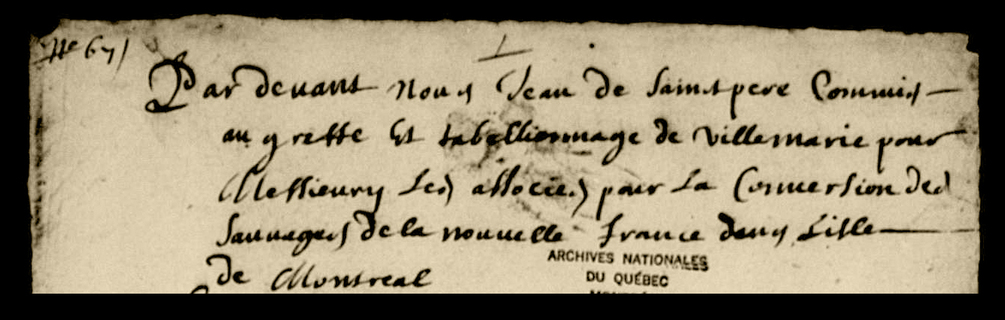 Par devant nous Jean de Sainct pere Commis
au greffe Et tabellionnage de Villemarie pour
Messieurs Les associes pour La Conversion des
Sauvages de la nouvelle france dans Lisle
de Montreal
ARCHIVES NATIONALES
DU QUÉBEC